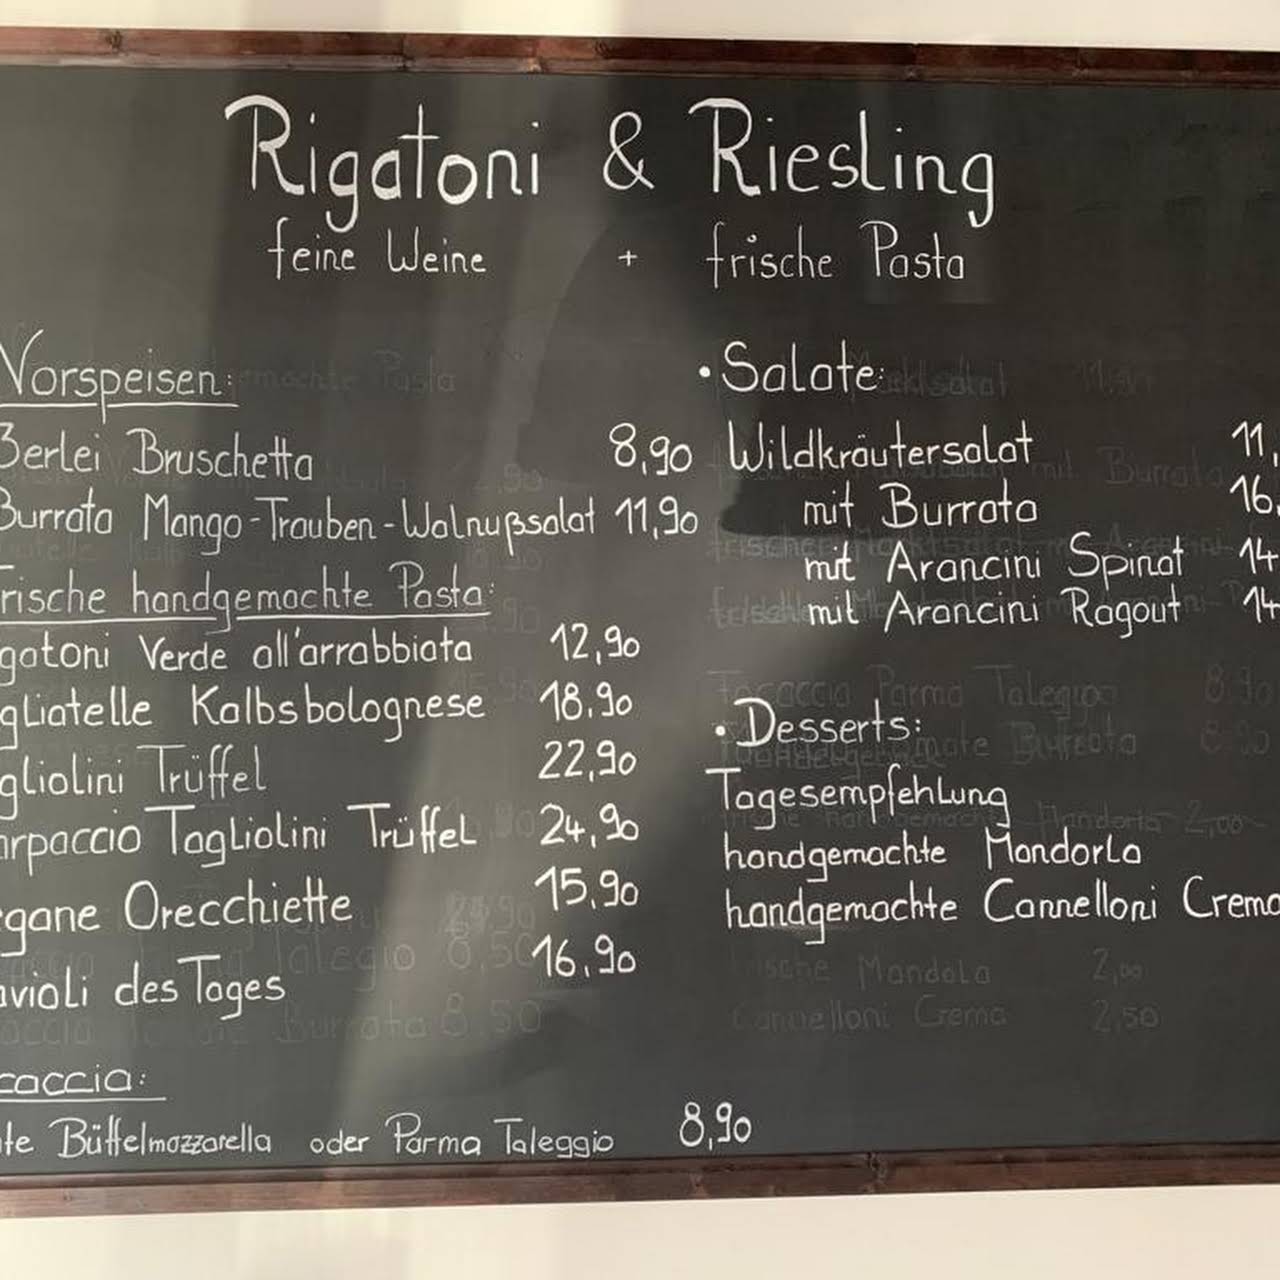 Rigatoni & Riesling
feine Weine + frische Pasta
Vorspeisen:
Berlei Bruschetta 8,90
Burrata Mango-Trauben-Walnußsalat 11,90
rische handgemachte Pasta:
gatoni Verde all'arrabbiata 12,90
gliatelle Kalbsbolognese 18,90
gliolini Trüffel 22,90
arpaccio Tagliolini Trüffel 24,90
egane Orecchiette 15,90
avioli des Tages 16,90
caccia:
te Büffelmozzarella oder Parma Taleggio 8,90
• Salate:
Wildkräutersalat 11,
mit Burrata 16,
mit Arancini Spinat 14
mit Arancini Ragout 14
• Desserts:
Tagesempfehlung
handgemachte Mandorla
handgemachte Cannelloni Crema